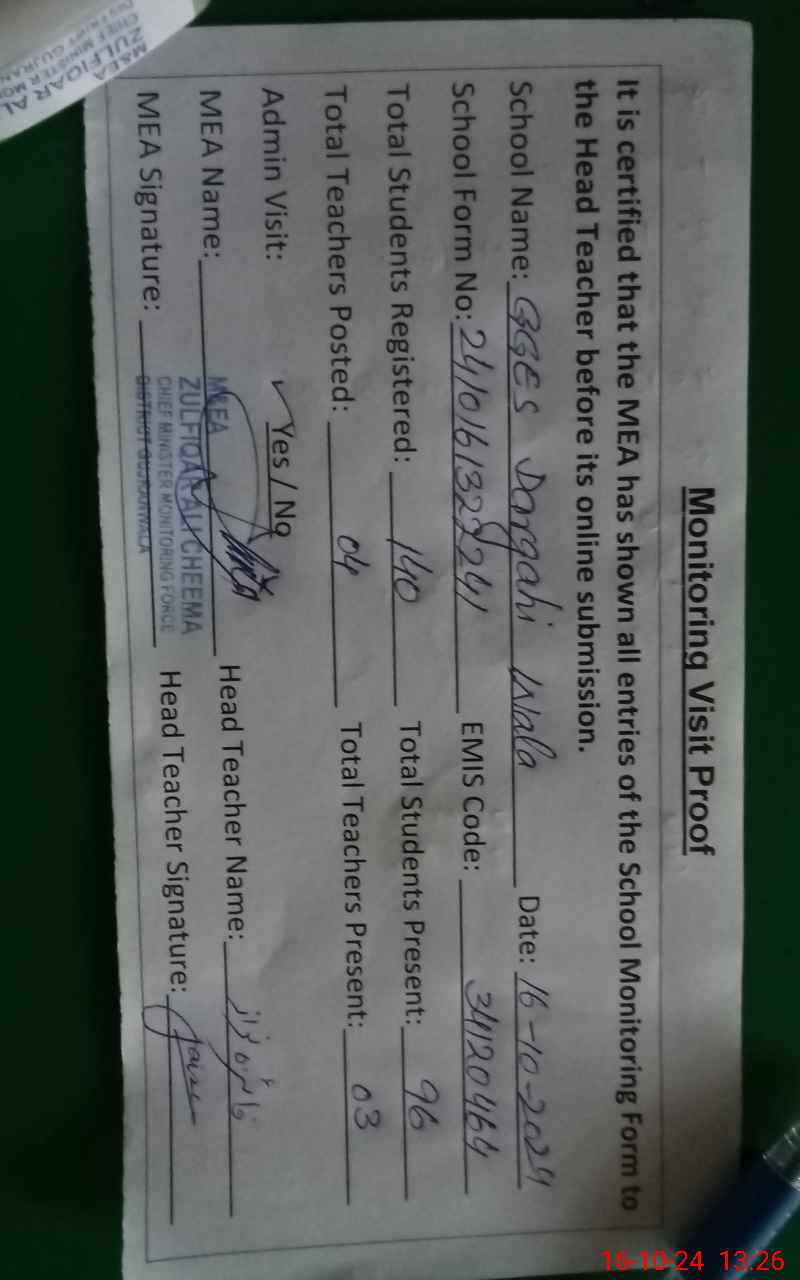 Monitoring Visit Proof
It is certified that the MEA has shown all entries of the School Monitoring Form to
the Head Teacher before its online submission.
School Name: GGES Dargahi Wala Date: 16-10-2024
School Form No: EMIS Code: 34120464
Total Students Registered: 140 Total Students Present: 96
Total Teachers Posted: 04 Total Teachers Present: 03
Admin Visit: ✓ Yes / No
MEA Name: Head Teacher Name:
MEA Signature: Head Teacher Signature:
M&EA
ZULFIQAR ALI CHEEMA
CHIEF MINISTER MONITORING FORCE
DISTRICT GUJRANWALA
M&EA
ZULFIQAR AL
CHIEF MINISTER MON
DISTRICT GUJRAN
16-10-24 13:26